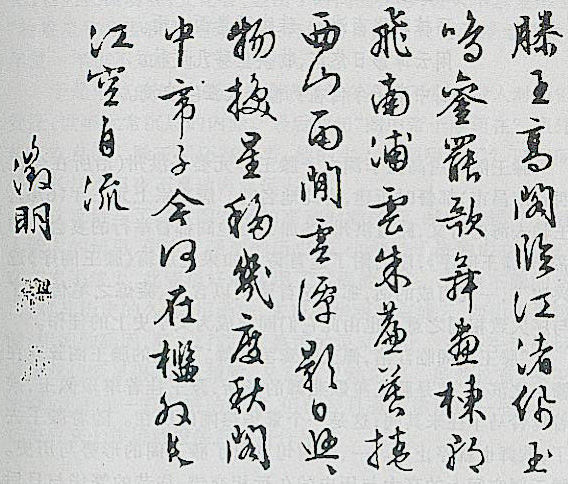 滕王高閣臨江渚佩玉
鳴鑾罷歌舞畫棟朝
飛南浦雲朱簾暮捲
西山雨閒雲潭影日悠悠
物換星移幾度秋閣
中帝子今何在檻外長
江空自流
徵明